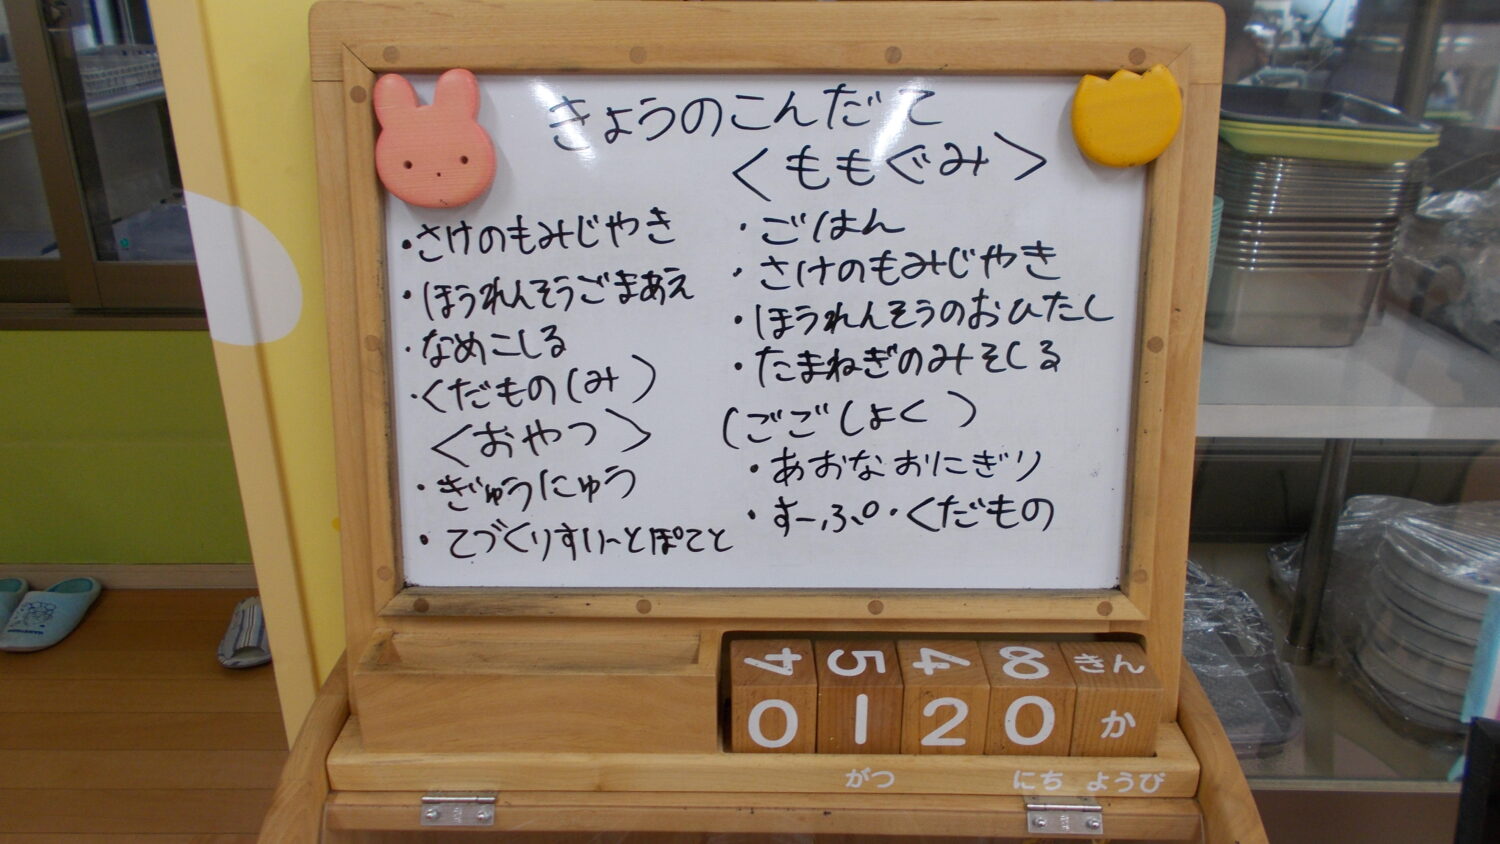 きょうのこんだて
・さけのもみじやき
・ほうれんそうごまあえ
・なめこしる
・くだもの(みかん)
＜おやつ＞
・ぎゅうにゅう
・てづくりすいーとぽてと
＜ももぐみ＞
・ごはん
・さけのもみじやき
・ほうれんそうのおひたし
・たまねぎのみそしる
(ごごしょく)
・あおなおにぎり
・すーぷ・くだもの
4 5 4 8 きん
0 1 2 0 か
がつ にち ようび